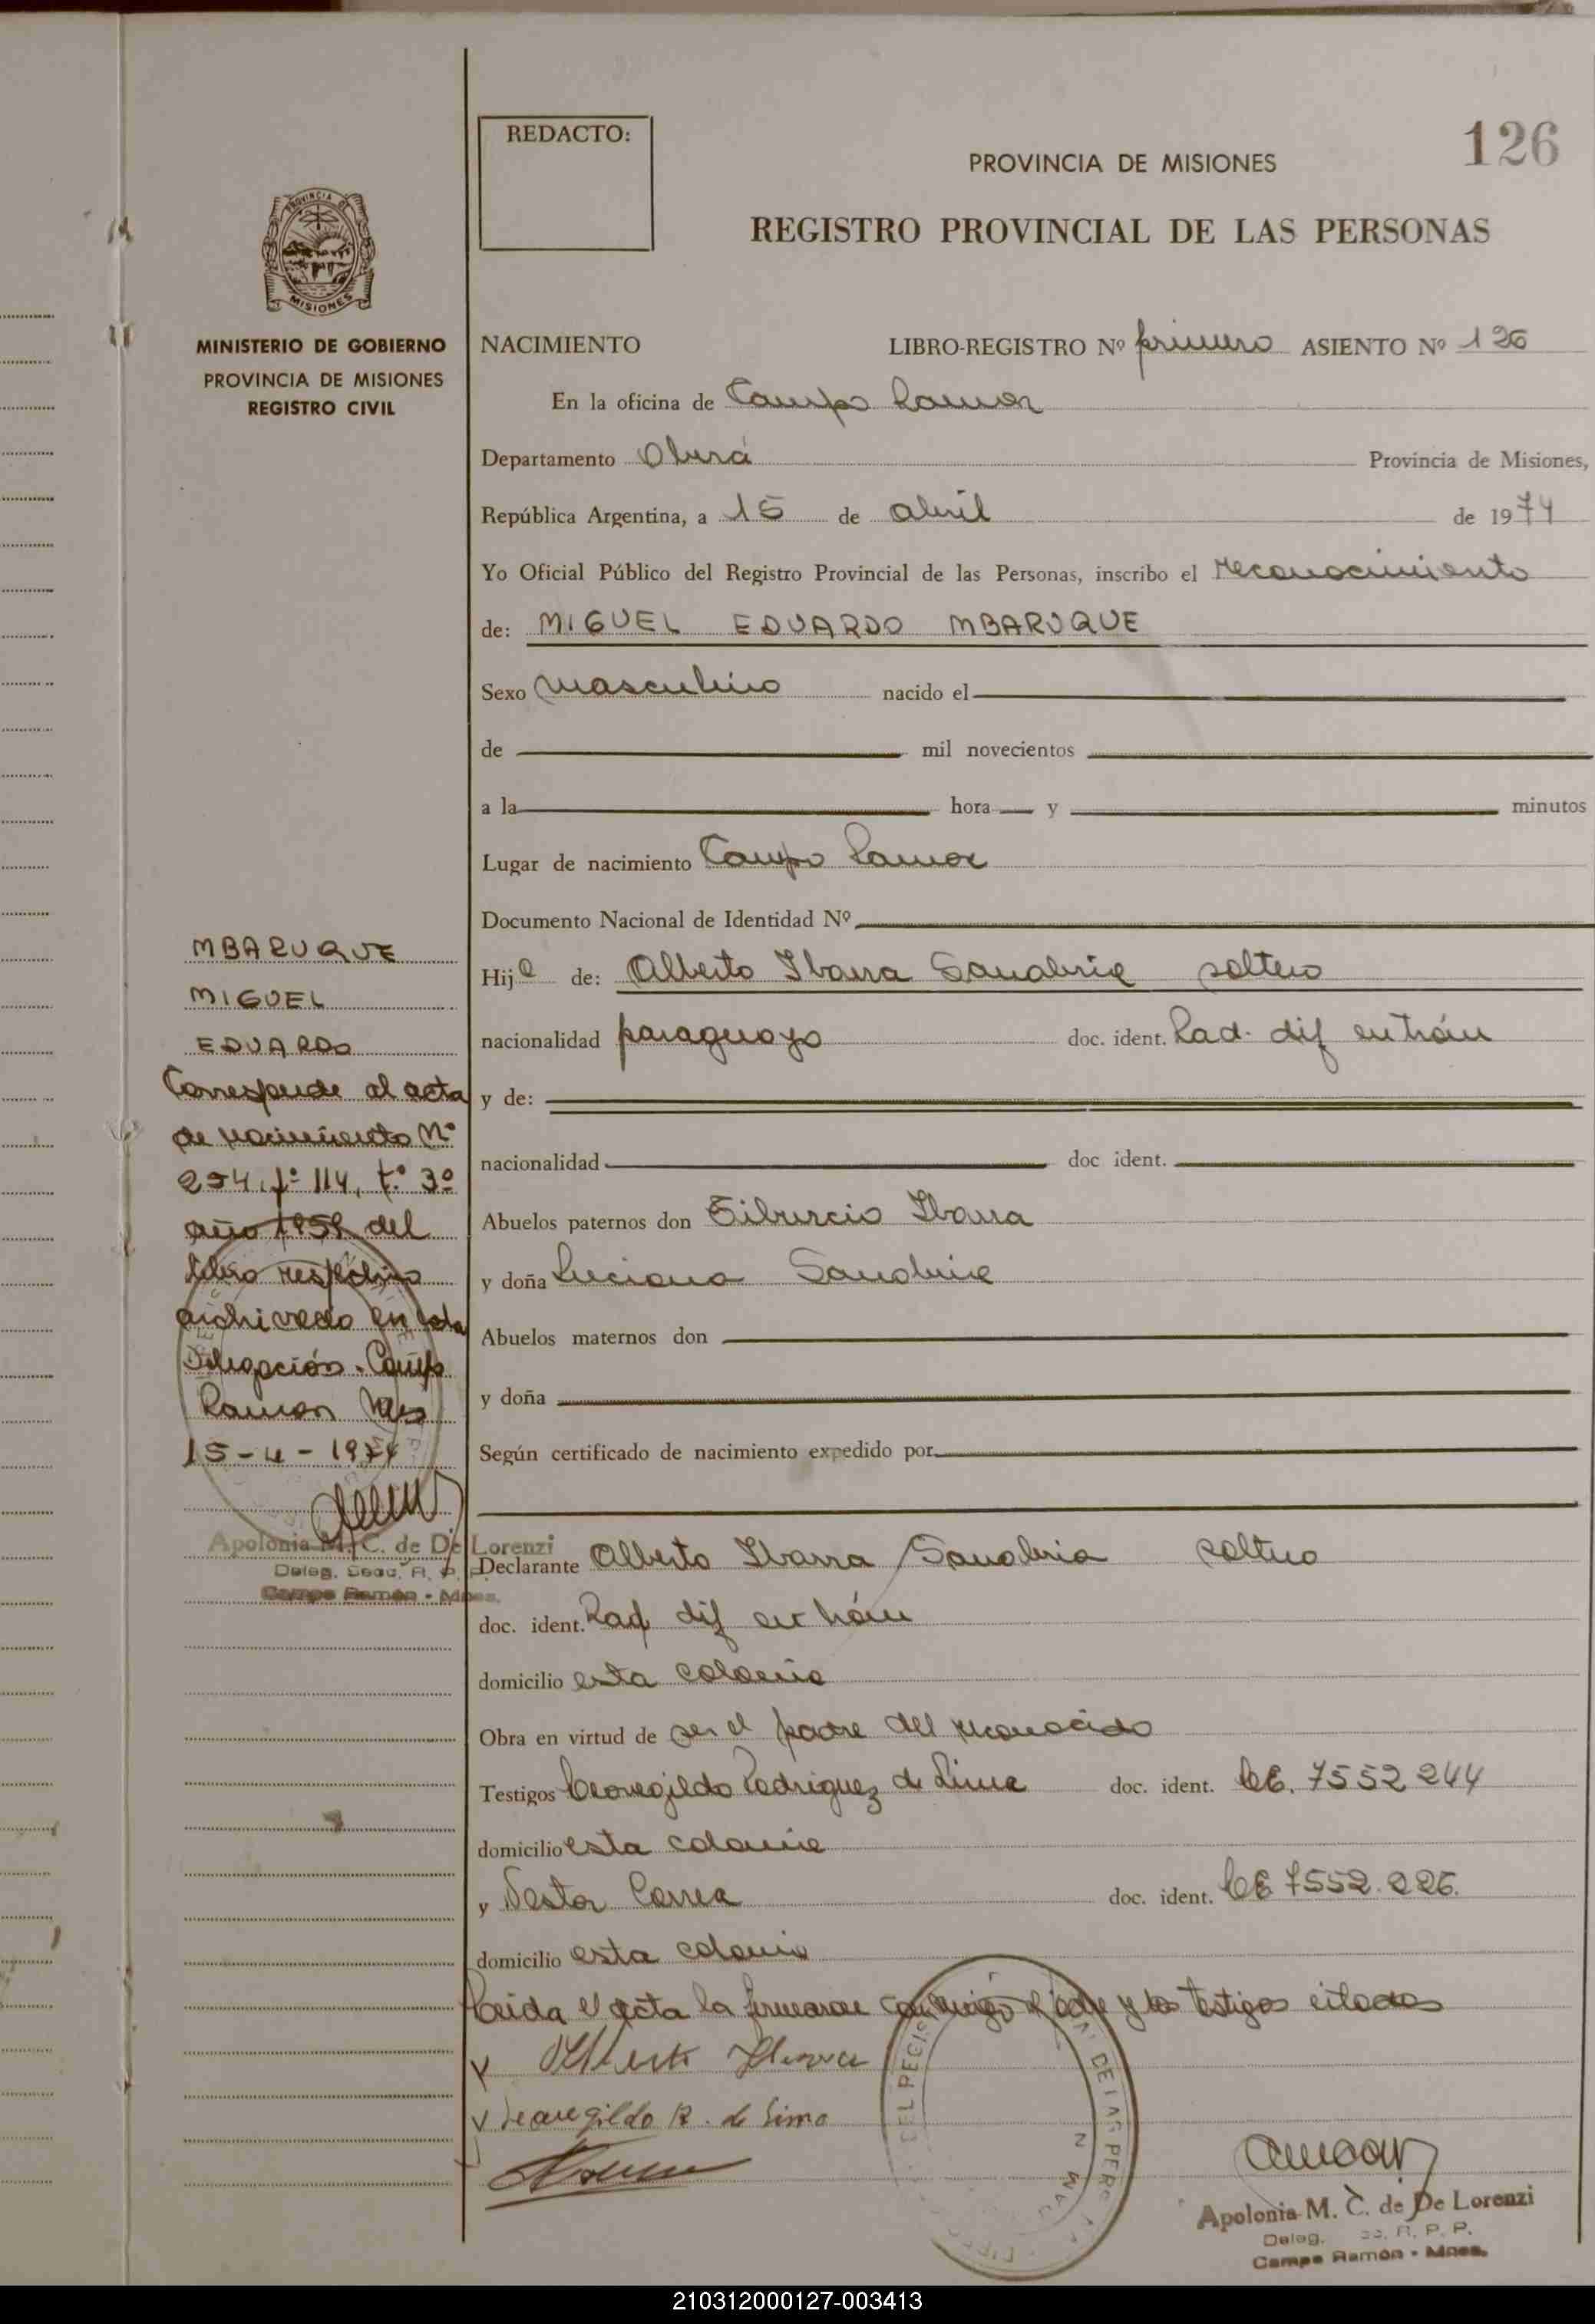 126
REDACTO:
PROVINCIA DE MISIONES
REGISTRO PROVINCIAL DE LAS PERSONAS
PROVINCIA DE
MISIONES
MINISTERIO DE GOBIERNO
PROVINCIA DE MISIONES
REGISTRO CIVIL
NACIMIENTO LIBRO-REGISTRO Nº primero ASIENTO Nº 126
En la oficina de Campo Ramon
Departamento Oberá Provincia de Misiones,
República Argentina, a 15 de abril de 1974
Yo Oficial Público del Registro Provincial de las Personas, inscribo el reconocimiento
de: MIGUEL EDUARDO MBARUQUE
Sexo masculino nacido el
de mil novecientos
a la hora y minutos
Lugar de nacimiento Campo Ramon
Documento Nacional de Identidad Nº
Hijo de: Alberto Ibarra Sanabria soltero
nacionalidad paraguayo doc. ident. Rad. dif en trám
y de:
nacionalidad doc ident.
Abuelos paternos don Tiburcio Ibarra
y doña Luciana Sanabria
Abuelos maternos don
y doña
Según certificado de nacimiento expedido por
Declarante Alberto Ibarra Sanabria soltero
doc. ident. Rad dif en trám
domicilio esta colonia
Obra en virtud de ser el padre del reconocido
Testigos Leovegildo Rodriguez de Lima doc. ident. LE. 7552244
domicilio esta colonia
y Nestor Correa doc. ident. LE 7552.226.
domicilio esta colonia
Leida el acta la firmaron conmigo el padre y los testigos citados
Alberto Ibarra
Leovegildo R. de Lima
Apolonia M. C. de De Lorenzi
Deleg. R. P. P.
Campo Ramón - Mnes.
MBARUQUE
MIGUEL
EDUARDO
Corresponde al acta
de nacimiento Nº
254, fº 114, tº 3º
año 1959 del
libro respectivo
archivado en esta
Delegación. Campo
Ramon Mnes
15-4-1974
Apolonia M. C. de De Lorenzi
Deleg. Secc. R. P. P.
Campo Ramón - Mnes.
210312000127-003413